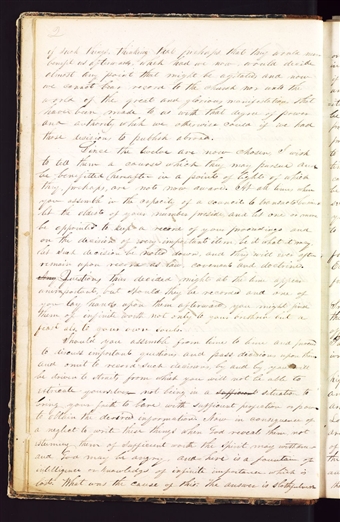 2
of such things thinking that perhaps that they would never
benefit us afterwards, which had we now, would decide
almost any point that might be agitated and now
we cannot bear record to the church nor unto the
world of the great and glorious manifestations that
have been made to us with that degree of power
and authority which we otherwise could if we had
these decisions to publish abroad.
Since the twelve are now chosen I wish
to tell them a course which they may pursue and
be benefitted hereafter in a point of light of which
they, perhaps, are not now aware. At all times when
you assemble in the capacity of a council to transact
let the oldest of your number preside and let one or more
be appointed to keep a record of your proceedings and
on the decision of every important item, be it what it may,
let such decision be noted down, and they will ever after
remain upon record as law, covenant and doctrine.
Questions thus decided might at the time appear
unimportant, but should they be recorded and one of
you lay hands upon them afterward you might find
them of infinite worth not only to your brethren but a
feast also to your own souls.
Should you assemble from time to time and proceed
to discuss important questions and pass decisions upon them
and omit to record such decisions, by and by you will
be driven to straits from which you will not be able to
extricate yourselves not being in a situation to
bring your faith to bear with sufficient perfection or power
to obtain the desired information. Now in consequence of
a neglect to write these things when God reveal them not
esteeming them of sufficient worth the spirit may withdraw
and God may be angry, and here is a fountain of
intelligence or knowledge of infinite importance which is
lost. What was the cause of this the answer is slothfulness